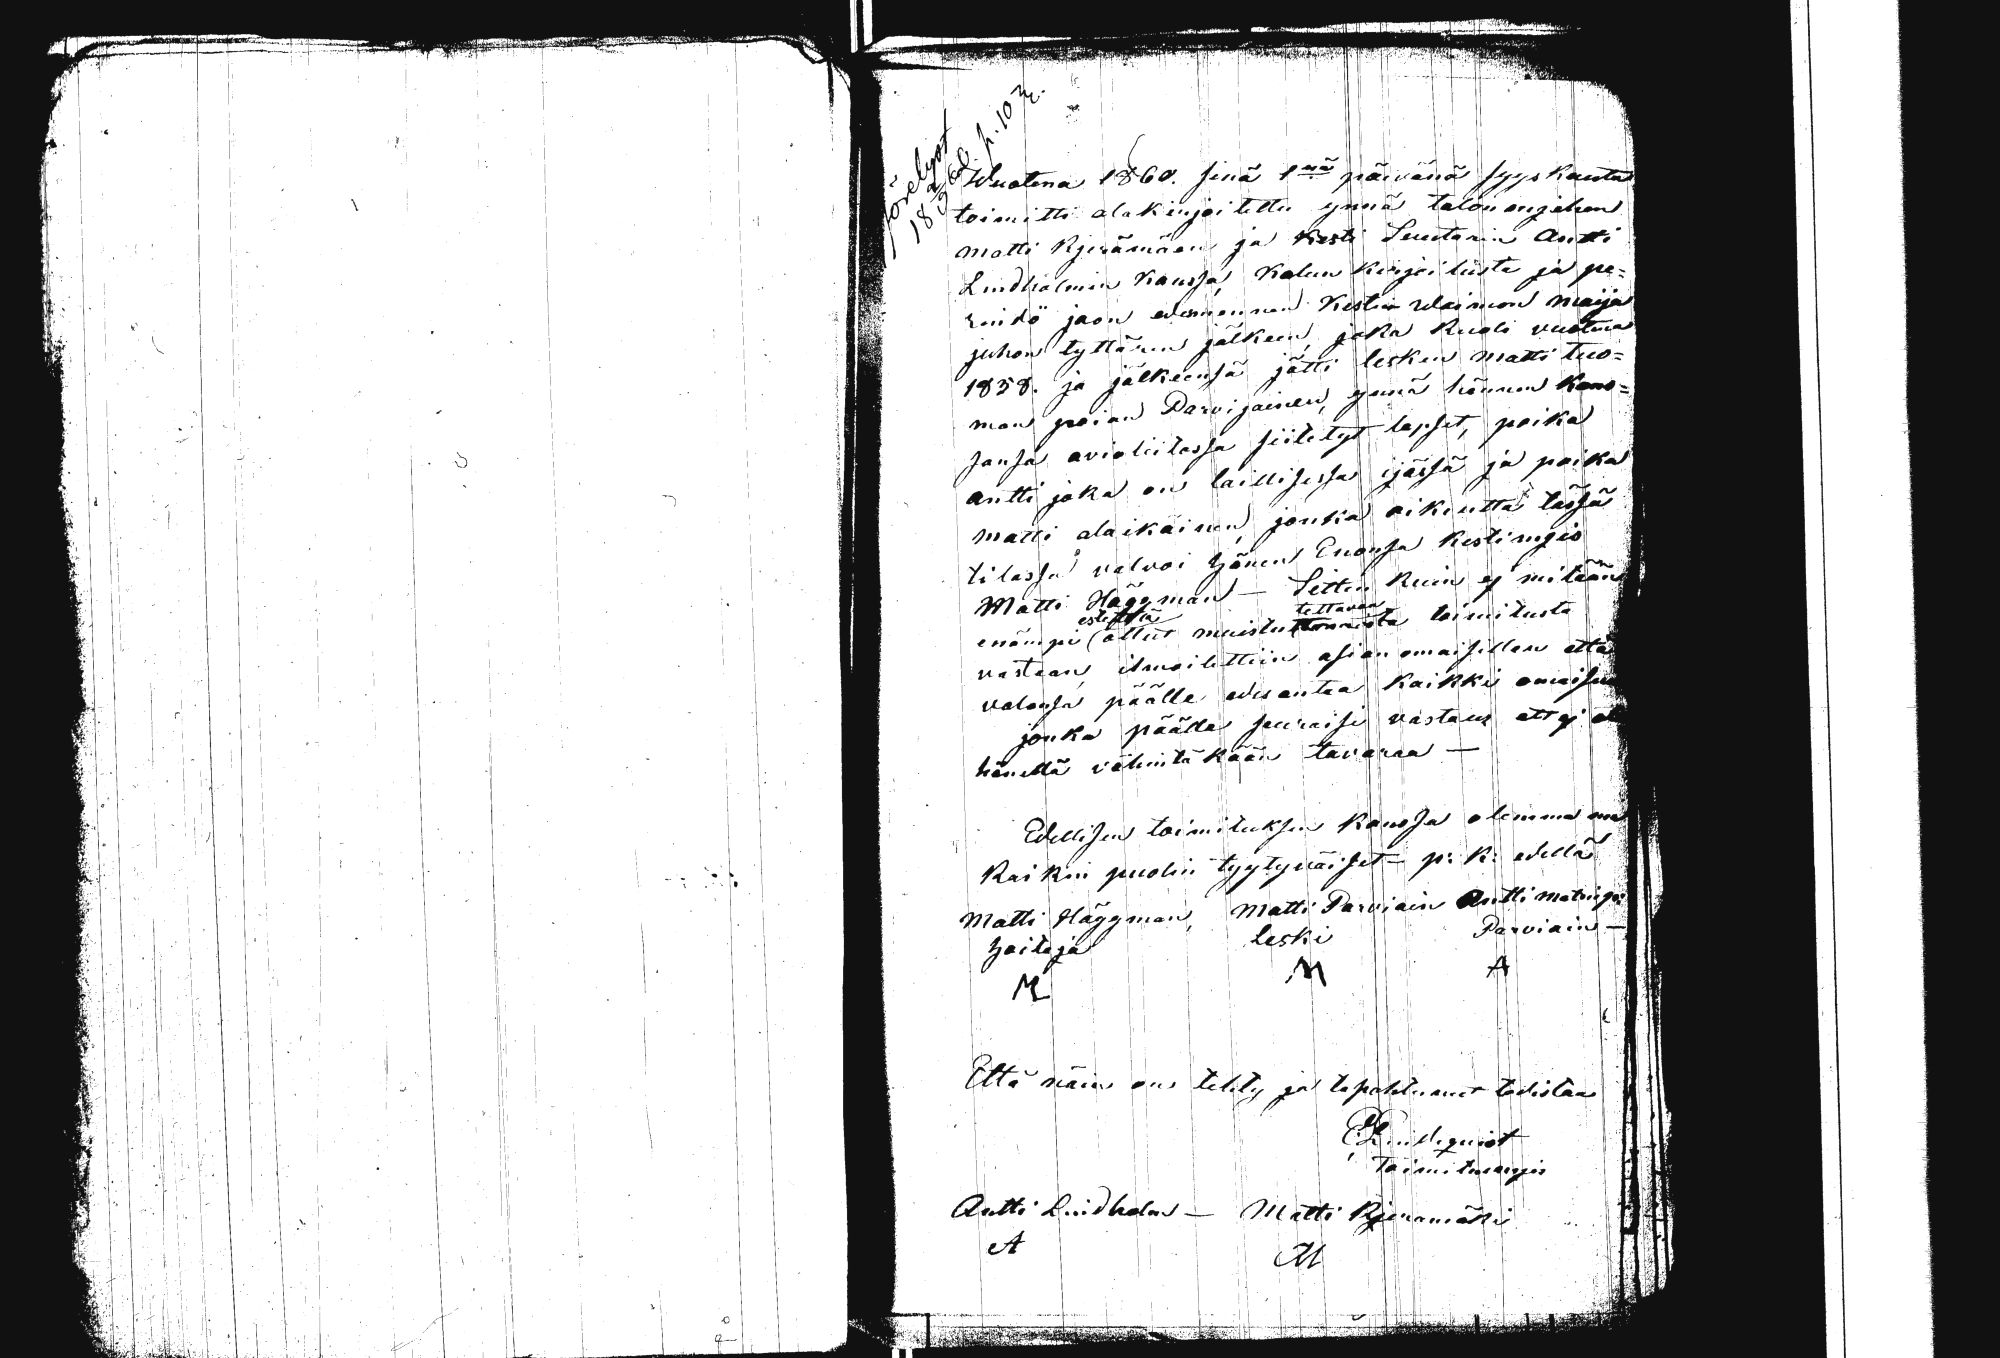 Wuotena 1860. sinä 1nä päivänä Syyskuuta
toimitti alakirjoitettu ynnä talon omjehen
Matti Kjerämäen ja Kesti Suutarin Antti
Lindholmin kanssa, kalun kirjoitusta ja pe=
rindö jaon edesmennen Kestin Waimon Maija
juhon tyttären jälkeen, joka kuoli vuotena
1858. ja jälkeensä jätti lesken Matti Tuo=
man poian Parvijainen, ynnä hänen kans=
sansa avioliitossa siitetyt lapset, poika
Antti joka on laillisessa ijässä ja poika
Matti alaikäinen, jonka oikeutta tässä
tilassa valvoi hänen Enonsa Kestimjes
Matti Häggman — Sitten kuin ej mitään
enämpi estettä ollut muistutettavaa toimitusta
vastaan, ilmoitettiin asian omaisillen että
valansa päälle edesantaa kaikki omaisuu
jonka päälle seuraisi vastaus ett ej ole
hänellä vähintäkään tavaraa —
Edellisen toimituksen kanssa olemma me
kaikin puolin tyytyväiset — p: k: edellä
Matti Häggman, Matti Parviain Antti Matinpoi
hoitaja leski Parviain —
M M A
Että näin on tehty ja tapahtunut todistaa
Lindequist
Toimitusmjes
Antti Lindholm — Matti Kjerämäki
A M